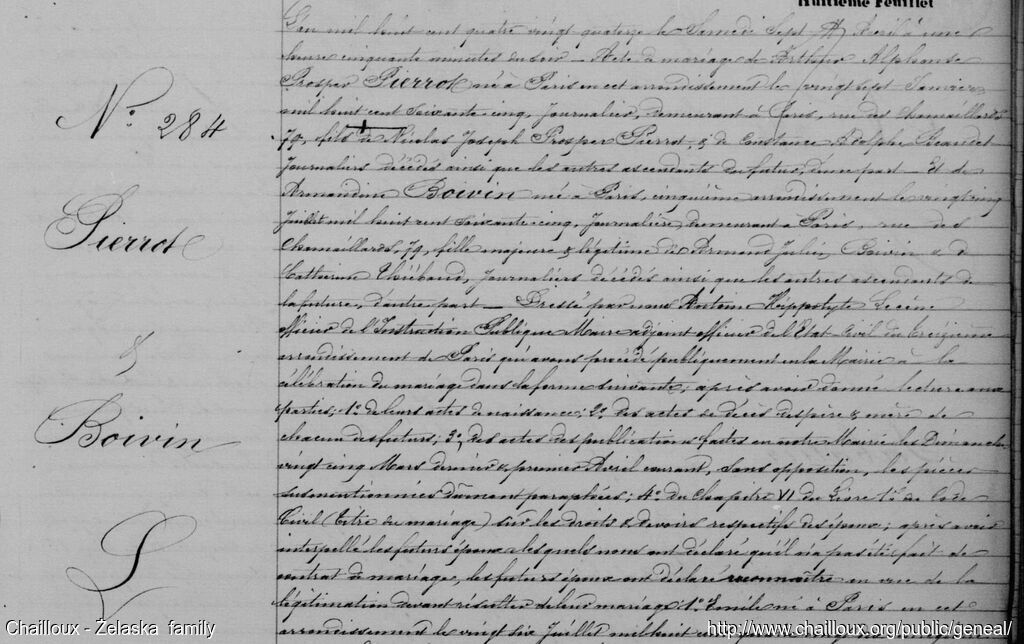 Huitième Feuillet
N° 284
Pierrot
&
Boivin
L'an mil huit cent quatre vingt quatorze le Samedi Sept Avril à une
heure cinquante minutes du soir — Acte de mariage de Arthur Alphonse
Prosper Pierrot né à Paris en cet arrondissement le vingt sept Janvier
mil huit cent soixante cinq, Journalier, demeurant à Paris, rue des Chamaillards
79, fils de Nicolas Joseph Prosper Pierrot & de Constance Adolphe
Journaliers décédés ainsi que les autres ascendants du futur, d'une part — Et de
Armandine Boivin née à Paris, cinquième arrondissement le vingt cinq
Juillet mil huit cent soixante cinq, Journalière, demeurant à Paris, rue des
Chamaillards, 79, fille majeure & légitime de Armand Julien Boivin & de
Catherine Thiébaud, Journaliers décédés ainsi que les autres ascendants de
la future, d'autre part — Dressé par nous Antoine Hippolyte
officier de l'Instruction Publique Maire adjoint officier de l'Etat Civil du treizième
arrondissement de Paris qui avons procédé publiquement en la Mairie à la
célébration du mariage dans la forme suivante; après avoir donné lecture aux
parties; 1° de leurs actes de naissance; 2° des actes de décès des père & mère de
chacun des futurs; 3° des actes des publications faites en notre Mairie les Dimanches
vingt cinq Mars dernier & premier Avril courant, sans opposition, les pièces
susmentionnées dûment paraphées; 4° du chapitre VI du Livre 1er du Code
Civil (titre du mariage) sur les droits & devoirs respectifs des époux; après avoir
interpellé les futurs époux lesquels nous ont déclaré qu'il n'a pas été fait de
contrat de mariage, les futurs époux ont déclaré reconnaître en vue de la
légitimation devant résulter de leur mariage 1° Emile né à Paris en cet
arrondissement le vingt six Juillet mil huit
Chailloux - Želaska family
http://www.chailloux.org/public/geneal/